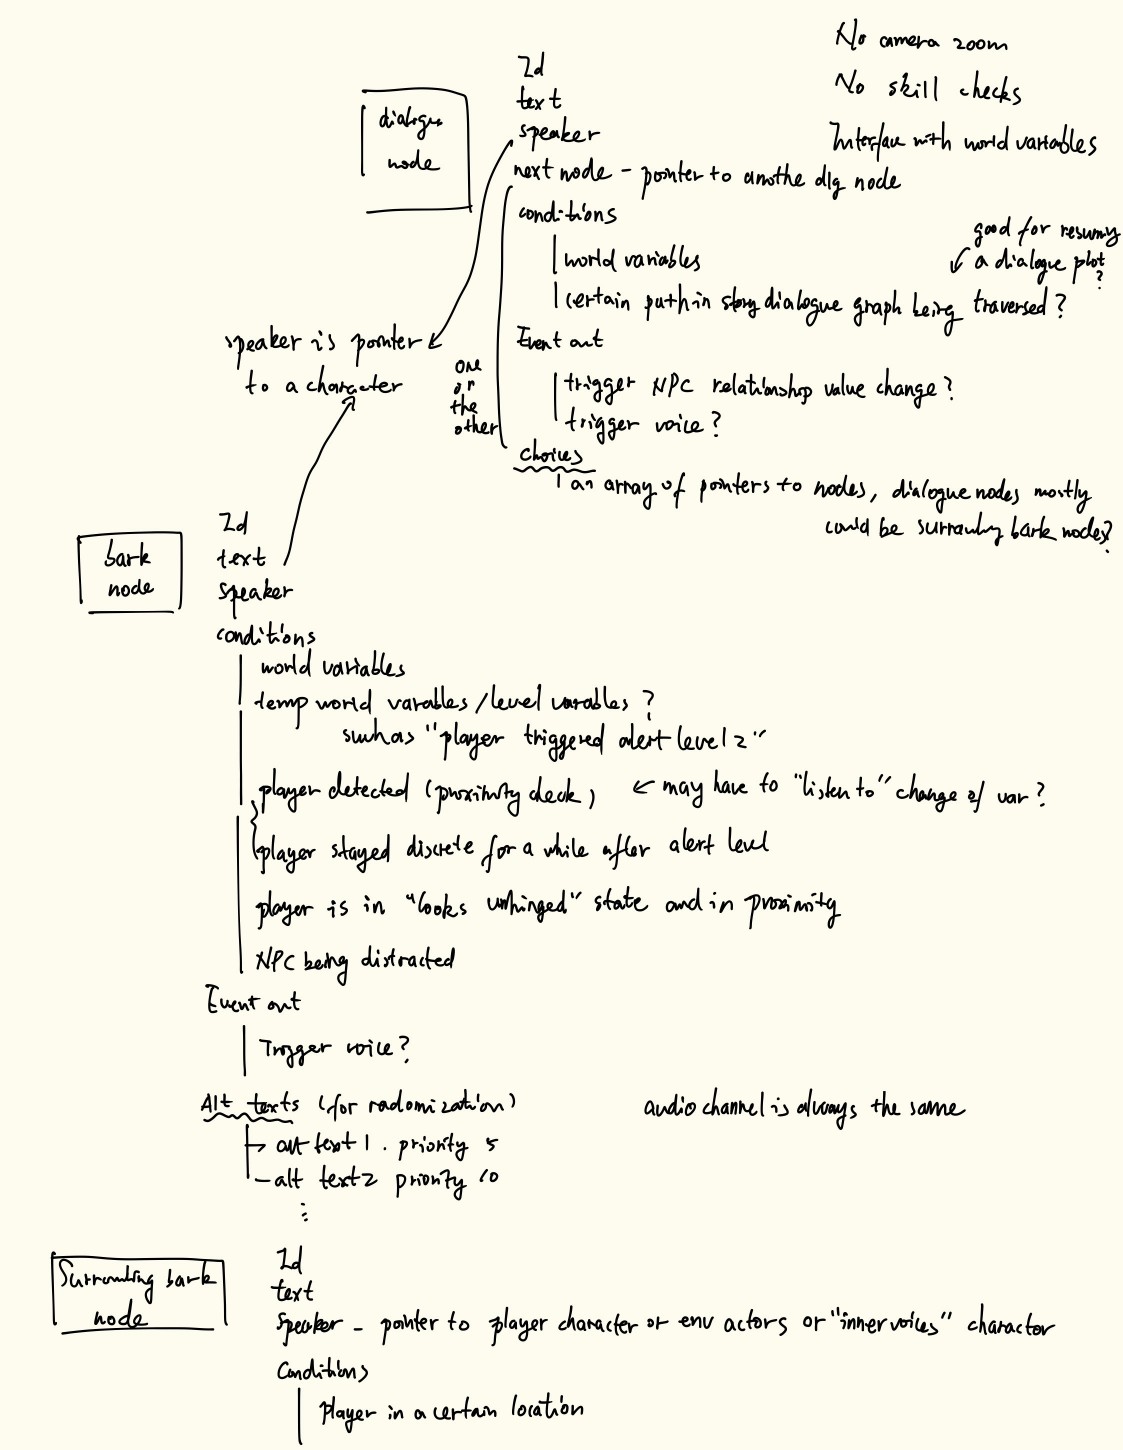 No camera zoom
No skill checks
Interface with world variables
dialogue
node
Id
text
speaker
next node - pointer to anothe dlg node
conditions
world variables
certain path in story dialogue graph being traversed?
good for resuming
a dialogue plot
?
Event out
trigger NPC relationship value change?
trigger voice?
one
or
the
other
choices
an array of pointers to nodes, dialogue nodes mostly
could be surrounding bark nodes?
speaker is pointer
to a character
bark
node
Id
text
speaker
conditions
world variables
temp world varables / level variables ?
such as "player triggered alert level 2"
player detected (proximity check) ← may have to "listen to" change of var?
player stayed discrete for a while after alert level
player is in "looks unhinged" state and in proximity
NPC being distracted
Event out
Trigger voice?
Alt texts (for radomization)
audio channel is always the same
alt text 1. priority 5
alt text 2 priority 10
Surrounding bark
node
Id
text
speaker - pointer to player character or env actors or "inner voices" charactor
Conditions
Player in a certain location